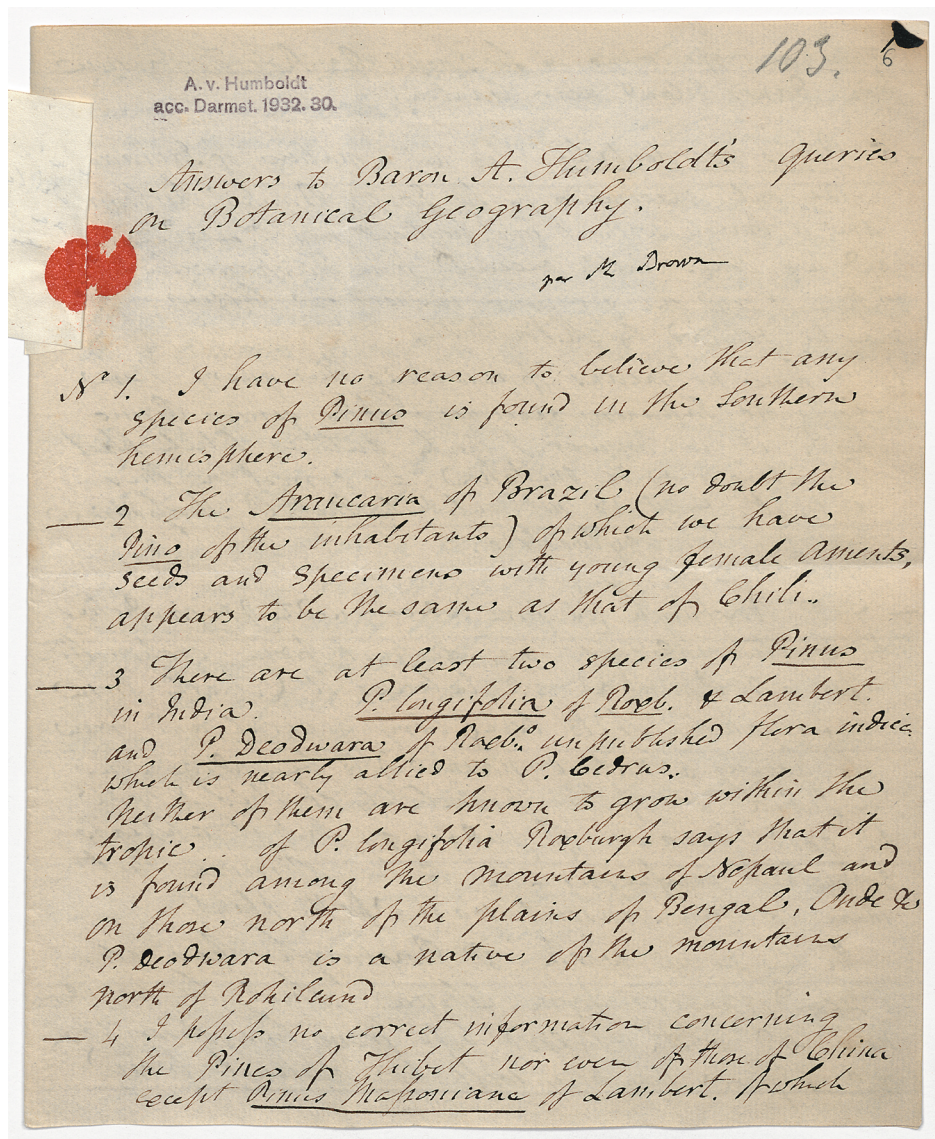 103.
6
A. v. Humboldt
acc. Darmst. 1932. 30.
Answers to Baron A. Humboldt's queries
on Botanical Geography.
par M Brown
No 1. I have no reason to believe that any
species of Pinus is found in the Southern
hemisphere.
— 2 The Araucaria of Brazil (no doubt the
Pino of the inhabitants) of which we have
seeds and specimens with young female aments,
appears to be the same as that of Chili..
— 3 There are at least two species of Pinus
in India. P. longifolia of Roxb. & Lambert.
and P. Deodwara of Roxb.o unpublished flora indica
which is nearly allied to P. Cedrus.
Neither of them are known to grow within the
tropic .. of P. longifolia Roxburgh says that it
is found among the mountains of Nepaul and
on those north of the plains of Bengal, Oude &c
P. Deodwara is a native of the mountains
north of Rohilcund
— 4 I possess no correct information concerning
the Pines of Thibet nor even of those of China
except Pinus Massoniana of Lambert. of which